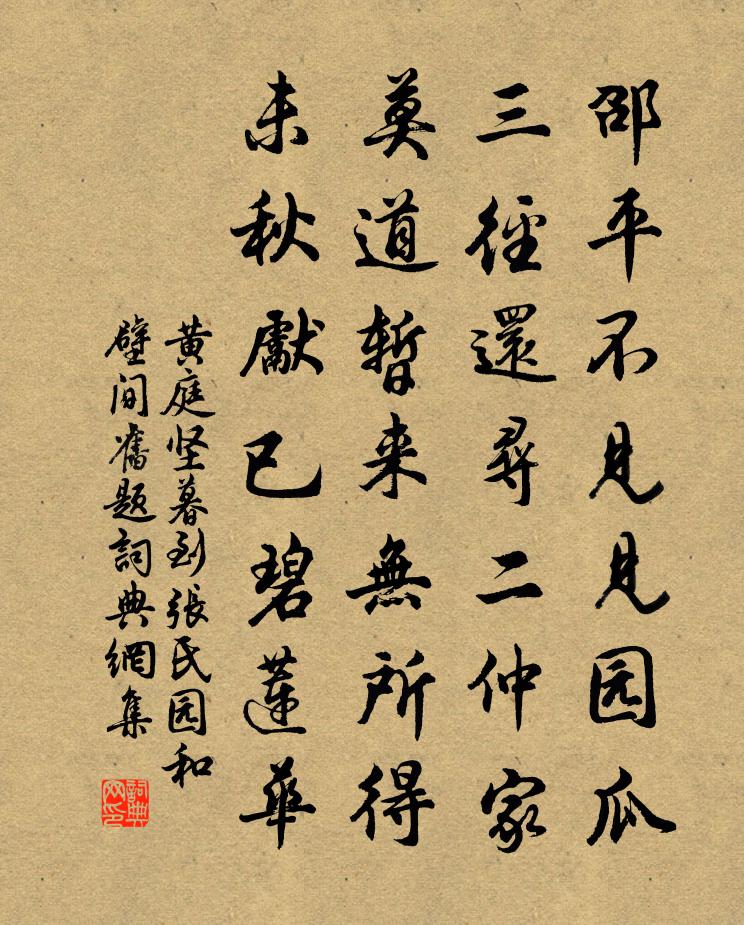 邵平不見見园瓜
三徑還尋二仲家
莫道暫来無所得
未秋獻已碧蓮華
黄庭坚暮到張氏园和
壁间舊题詞典網集
詞典
网印